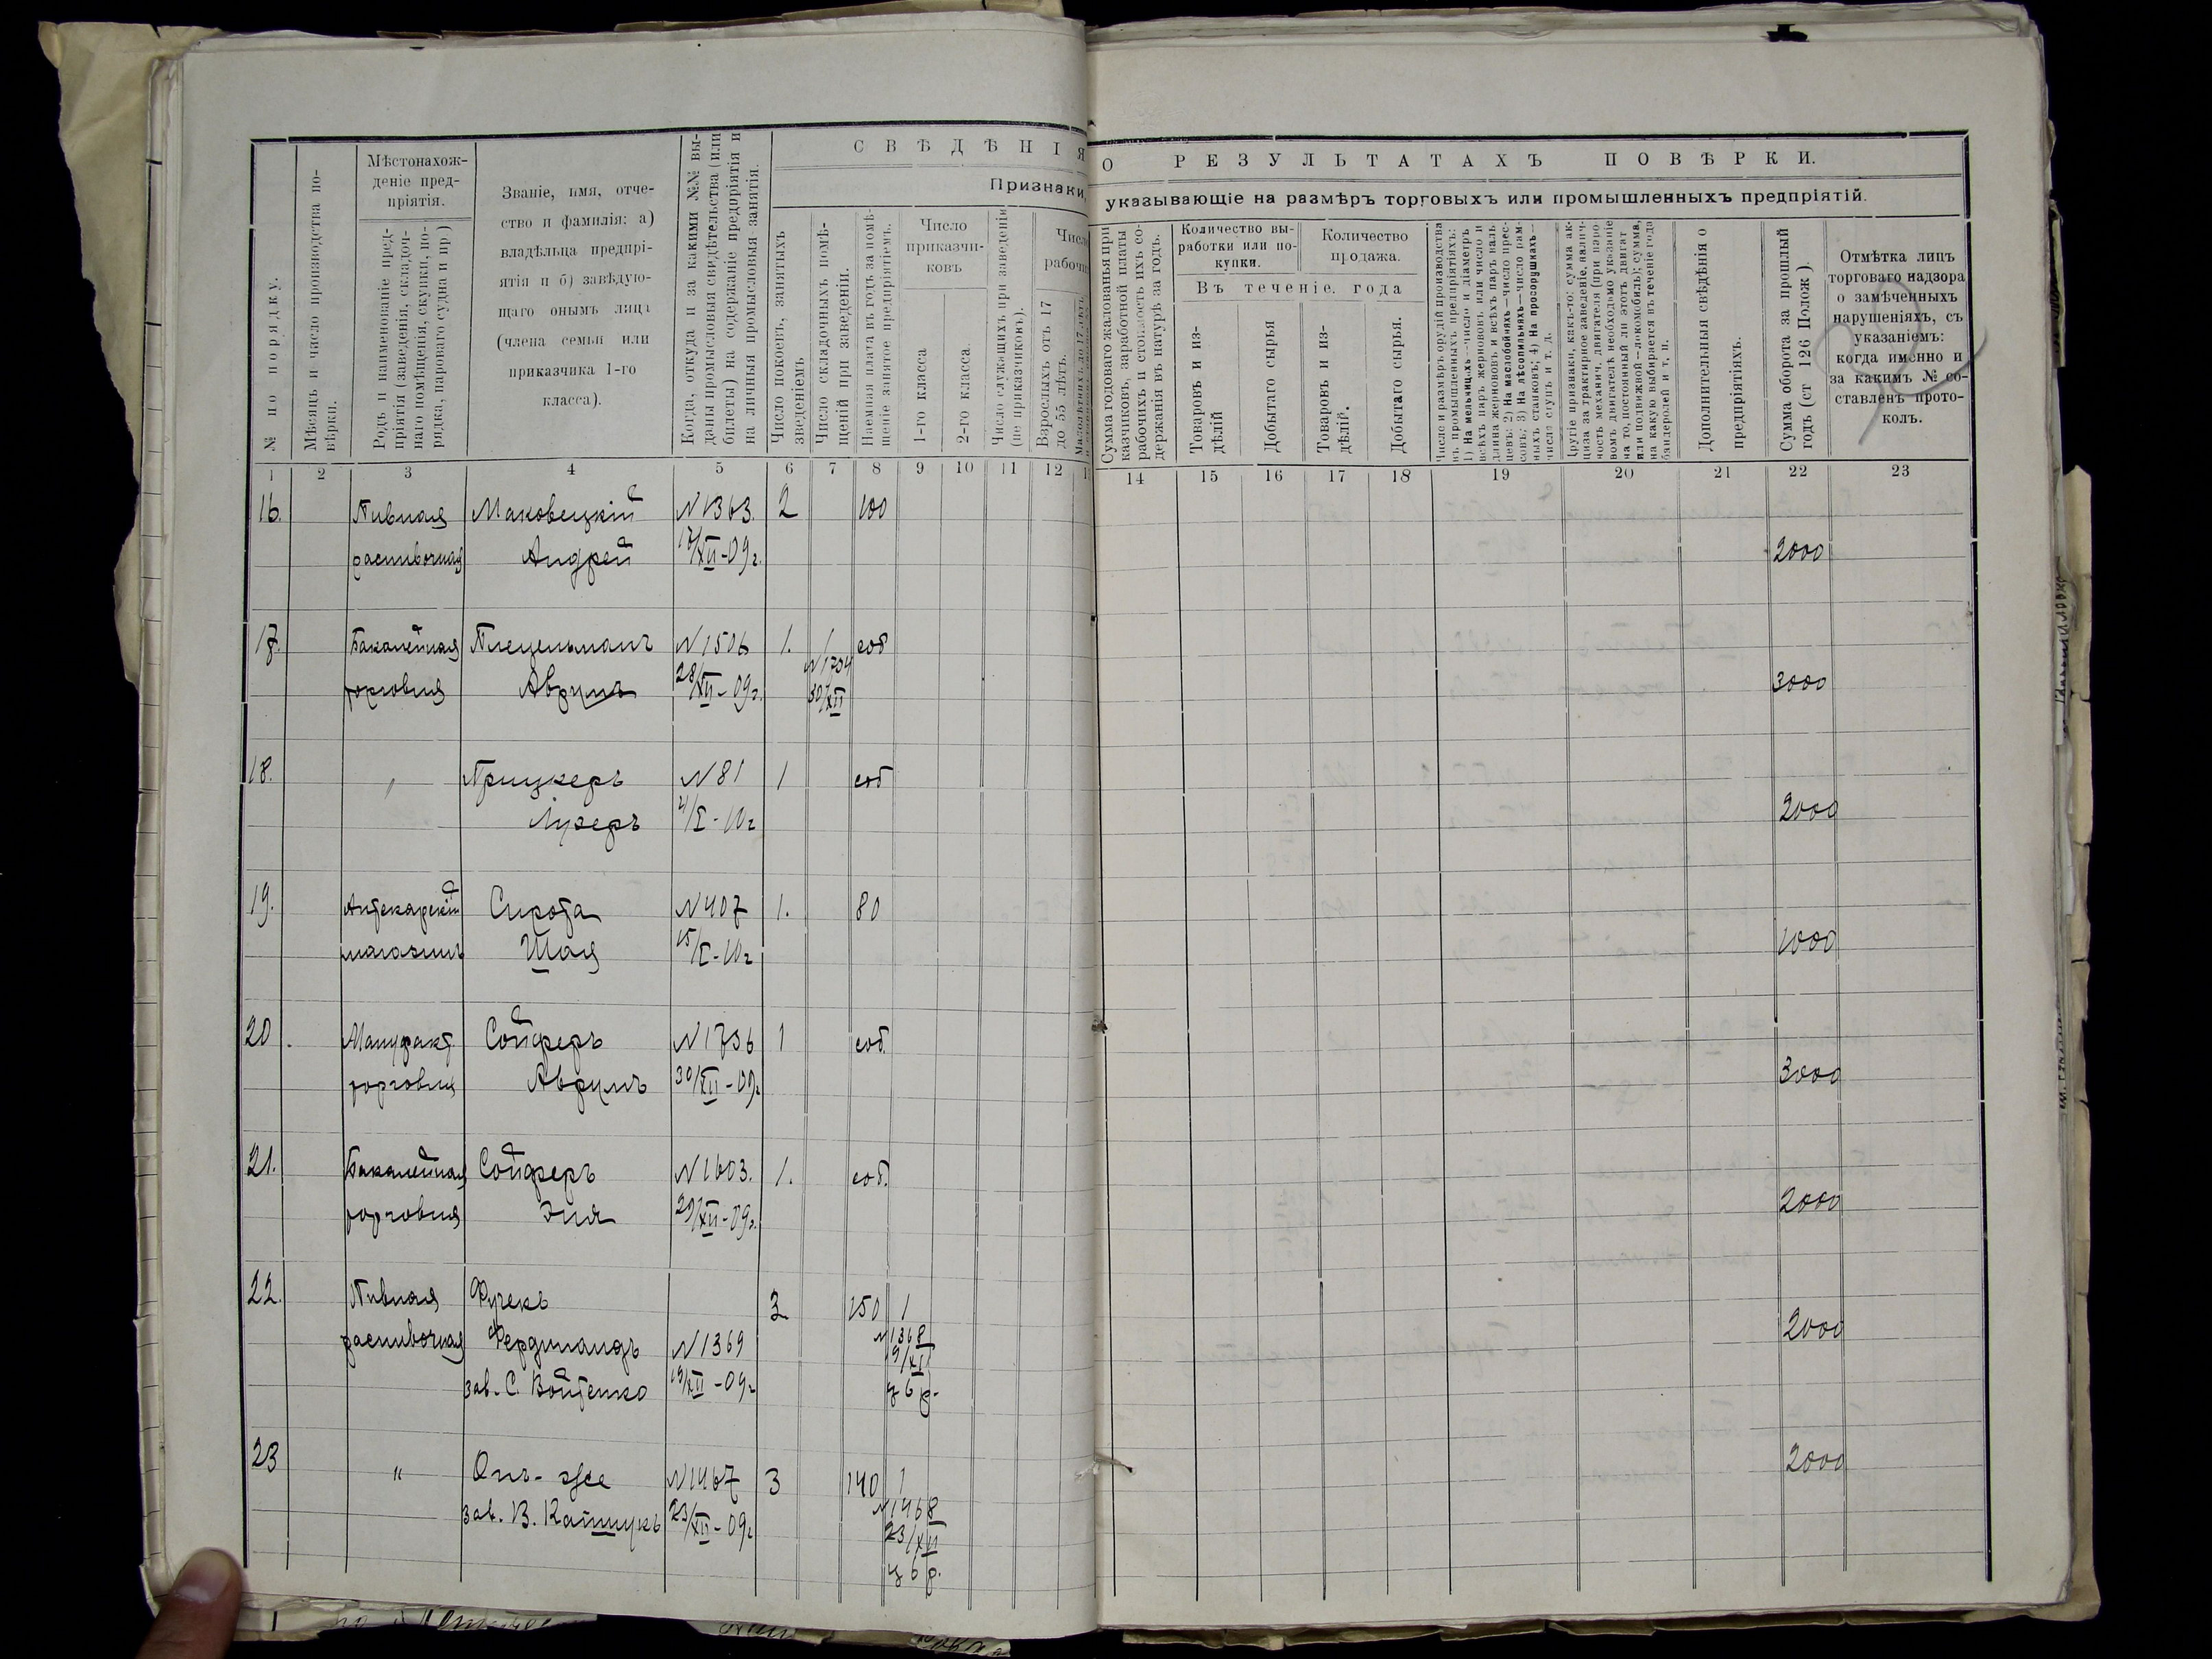 СВѢДѢНІЯ О РЕЗУЛЬТАТАХЪ ПОВѢРКИ.
Признаки, указывающіе на размѣръ торговыхъ или промышленныхъ предпріятій.
№ по порядку.
Мѣсяцъ и число производства по-
вѣрки.
Мѣстонахож-
деніе пред-
пріятія.
Родъ и наименованіе пред-
пріятія (заведенія, складоч-
наго помѣщенія, скупки, по-
ряда, парового судна и пр)
Званіе, имя, отче-
ство и фамилія: а)
владѣльца предпрі-
ятія и б) завѣдую-
щаго онымъ лица
(члена семьи или
приказчика 1-го
класса).
Когда, откуда и за какими №№ вы-
даны промысловыя свидѣтельства (или
билеты) на содержаніе предпріятія и
на личныя промысловыя занятія.
Число покоевъ, занятыхъ
зведеніемъ
Число складочныхъ помѣ-
щеній при заведеніи.
Наемная плата въ годъ за помѣ-
щеніе занятое предпріятіемъ.
Число
приказчи-
ковъ
1-го класса
2-го класса.
Число служащихъ при заведеніи
(не приказчиковъ).
Число
рабочи
Взрослыхъ отъ 17
до 55 лѣтъ.
Сумма годоваго жалованья при
казчиковъ, заработной платы
рабочихъ и стоимость ихъ со-
держанія въ натурѣ за годъ.
Количество вы-
работки или по-
купки.
Количество
продажа.
Въ теченіе года
Товаровъ и из-
дѣлій
Добытаго сырья
Товаровъ и из-
дѣлій.
Добытаго сырья.
Число и размѣръ орудій производства
въ промышленныхъ предпріятіяхъ:
1) На мельницахъ—число и діаметръ
всѣхъ паръ жернововъ или число и
длина жернововъ и всѣхъ паръ валь
цевъ; 2) На маслобойняхъ—число прес-
совъ; 3) На лѣсопильняхъ—число рам-
ныхъ становъ; 4) На просорушкахъ—
число ступъ и т. д.
Другіе признаки, какъ-то: сумма ак-
циза за трактирное заведеніе, налич-
ность механич. двигателя (при паро-
вомъ двигателѣ необходимо указаніе
на то, постоянный ли этотъ двигат
или подвижной—локомобиль); сумма,
на какую выбирается въ теченіе года
бандеролей и т. п.
Дополнительныя свѣдѣнія о
предпріятіяхъ.
Сумма оборота за прошлый
годъ (ст 126 Полож).
Отмѣтка лицъ
торговаго надзора
о замѣченныхъ
нарушеніяхъ, съ
указаніемъ:
когда именно и
за какимъ № со-
ставленъ прото-
колъ.
1 2 3 4 5 6 7 8 9 10 11 12 1 14 15 16 17 18 19 20 21 22 23
16. Пивная Маковецкій N1363. 2 100
распивочная Андрей 17/XII-09г. 2000
17. Бакалейная Плецельманъ N1506 1. 1 соб
N1704
торговля Аврумъ 28/XII-09г. 30/XII 3000
18. " Прицкеръ N81 1 соб
Лузеръ 4/I-10г 2000
19. Аптекарскій Сирота N407 1. 80
магазинъ Шая 15/I-10г 1000
20. Мануфакт. Сойферъ N1736 1 соб.
торговля Аврумъ 30/XII-09г 3000
21. Бакалейная Сойферъ N1603. 1. соб.
торговля Эля 29/XII-09г. 2000
22. Пивная Фучекъ 3 150 1
распивочная Фердинандъ N1369 N1368 2000
зав. С. Войтенко 19/XII-09г 19/XII
ц 6 р.
23 " Онъ-же N1467 3 140 1 2000
зав. В. Кашчукъ 23/XII-09г N1468
23/XII
ц 6 р.